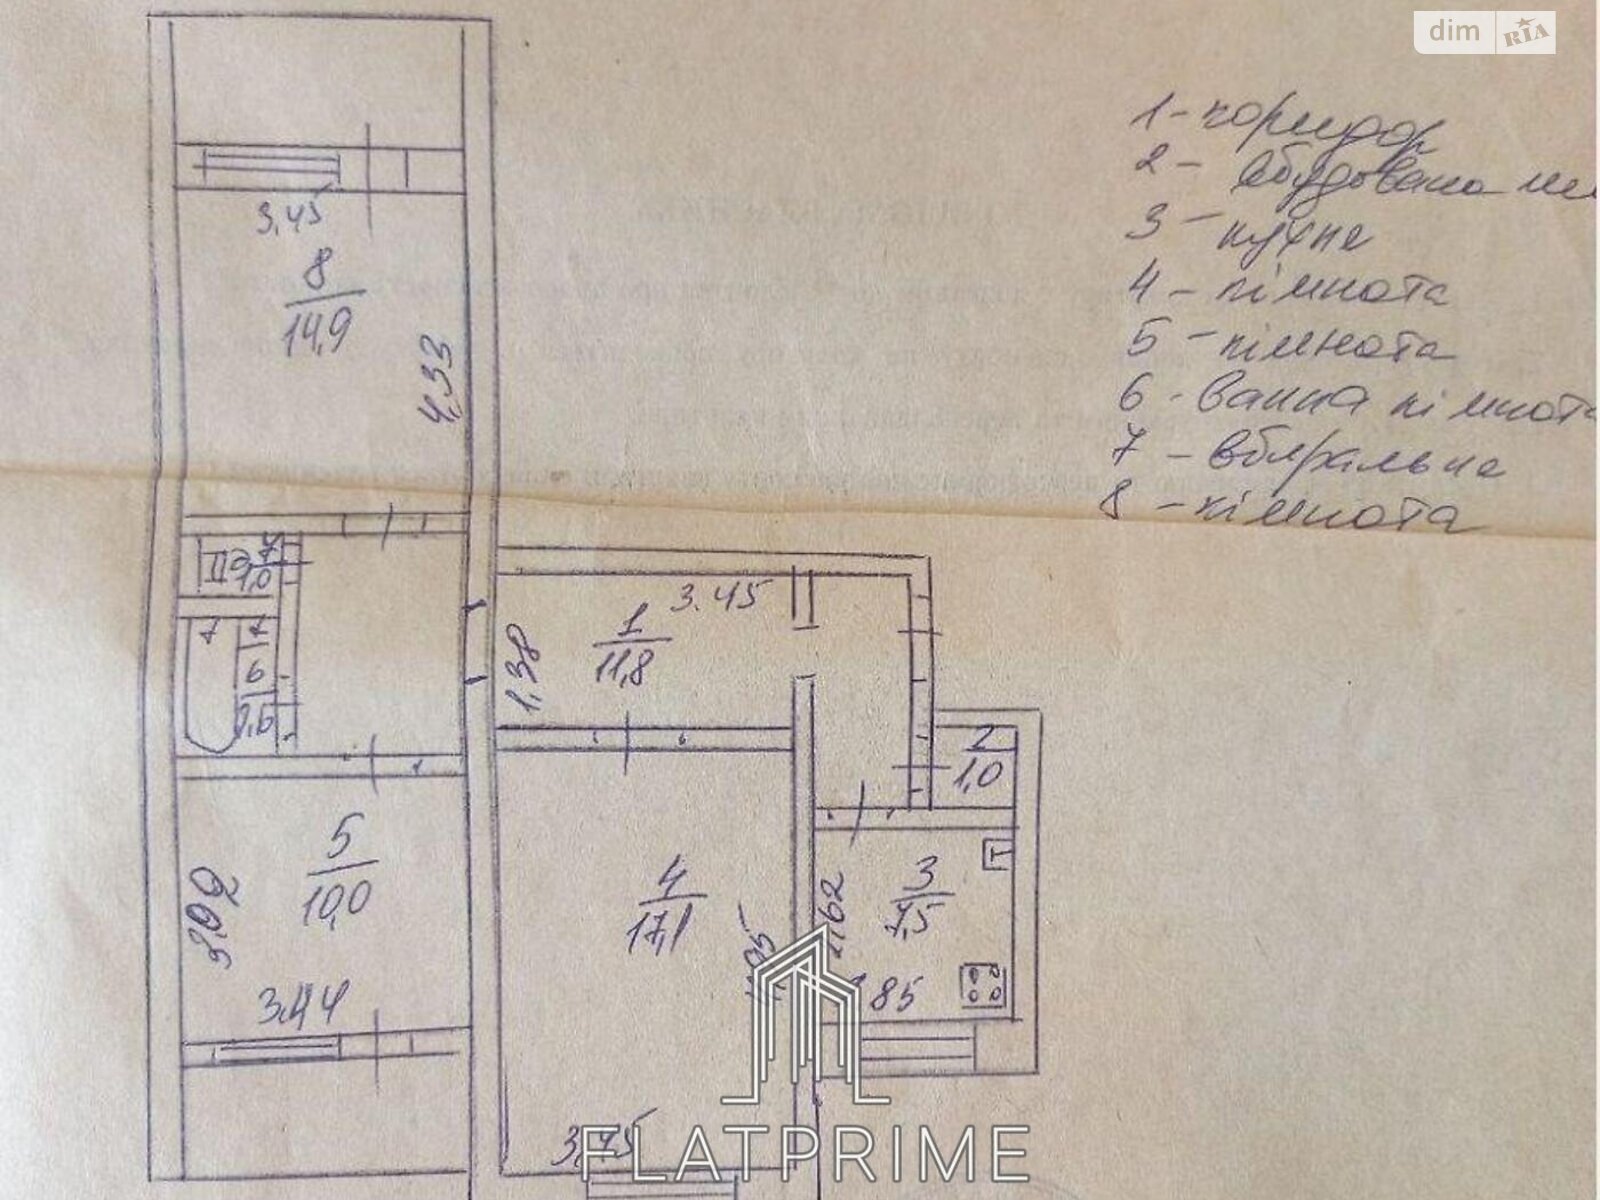 dim RIA
1 - коридор
2 - вбудована
3 - кухня
4 - кімната
5 - кімната
6 - ванна кімната
7 - вбиральня
8 - кімната
3,45
8
14,9
4,33
7
1,0
6
2,6
3.45
1
11,8
1,38
2
1,0
5
10,0
3,44
4
17,1
3
7,5
2,62
85
3,45
FLATPRIME